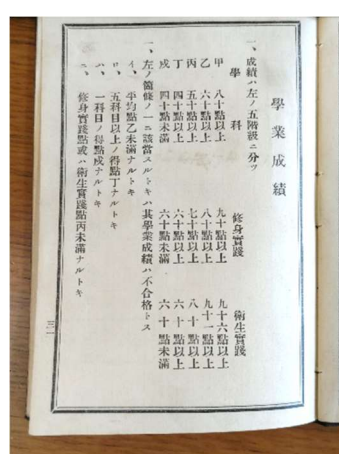 學業成績
一、成績ハ左ノ五階級ニ分ツ
學科 修身實踐 衛生實踐
甲 八十點以上 九十點以上 九十六點以上
乙 六十點以上 八十點以上 九十一點以上
丙 五十點以上 七十點以上 八十點以上
丁 四十點以上 六十點以上 六十點以上
戊 四十點未滿 六十點未滿 六十點未滿
一、左ノ箇條ノ一ニ該當スルトキハ其學業成績ハ不合格トス
イ、平均點乙未滿ナルトキ
ロ、五科目以上ノ得點丁ナルトキ
ハ、一科目ノ得點戊ナルトキ
ニ、修身實踐點或ハ衛生實踐點丙未滿ナルトキ